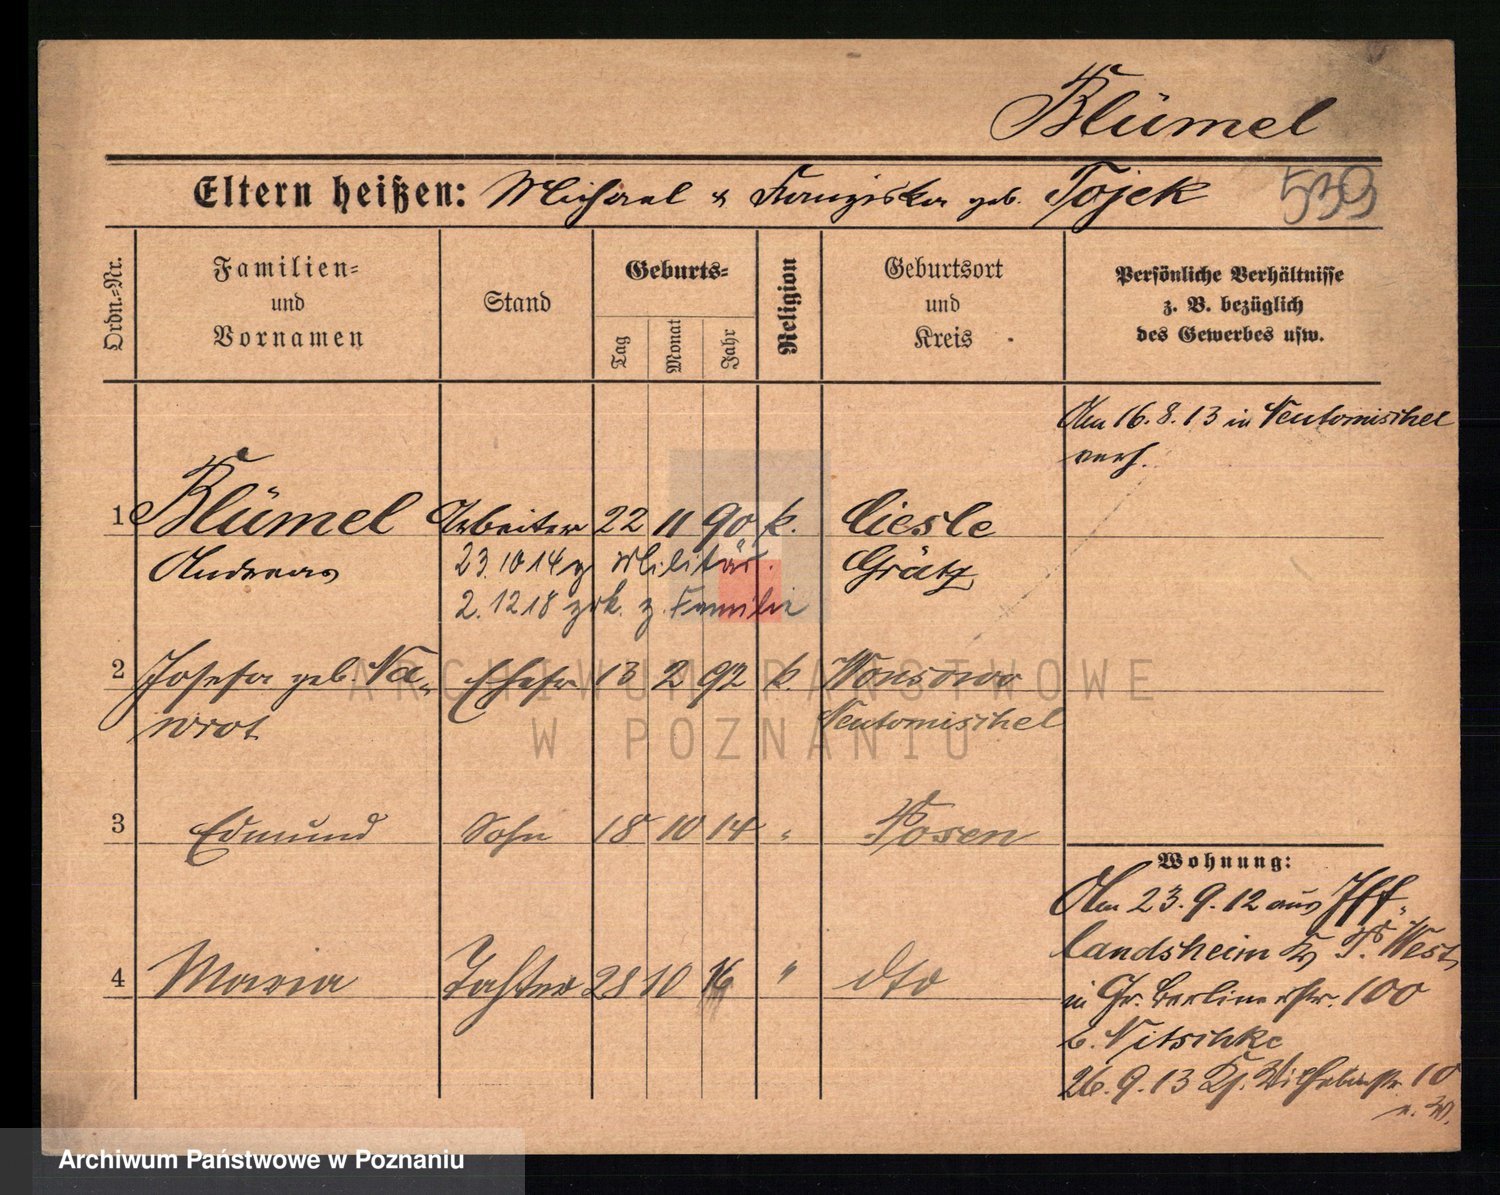 Blümel
Eltern heißen: Michael & Franziska geb. Tojek 539
Ordn.-Nr. Familien- und Vornamen Stand Geburts- Tag Monat Jahr Religion Geburtsort und Kreis Persönliche Verhältnisse z. B. bezüglich des Gewerbes usw.
Am 16.8.13 in Neutomischel
verh.
1 Blümel Arbeiter 22 11 90 k. Ciesle
Andreas 23.10 14 z Militär. Grätz
2.12 18 zrk. z. Familie
2 Josefa geb. Na- Ehefr 13 2 92 k. Wonsowo
wrot Neutomischel
3 Edmund Sohn 18 10 14 " Posen
Wohnung:
Am 23.9.12 aus Iff-
landsheim Kr P. West
4 Maria Tochter 28 10 16 " dto
in Gr. Berlinerstr. 100
b. Nitschke
26.9.13 Kl. Wilhelmstr 10
n. W.
ARCHIWUM PAŃSTWOWE
W POZNANIU
Archiwum Państwowe w Poznaniu